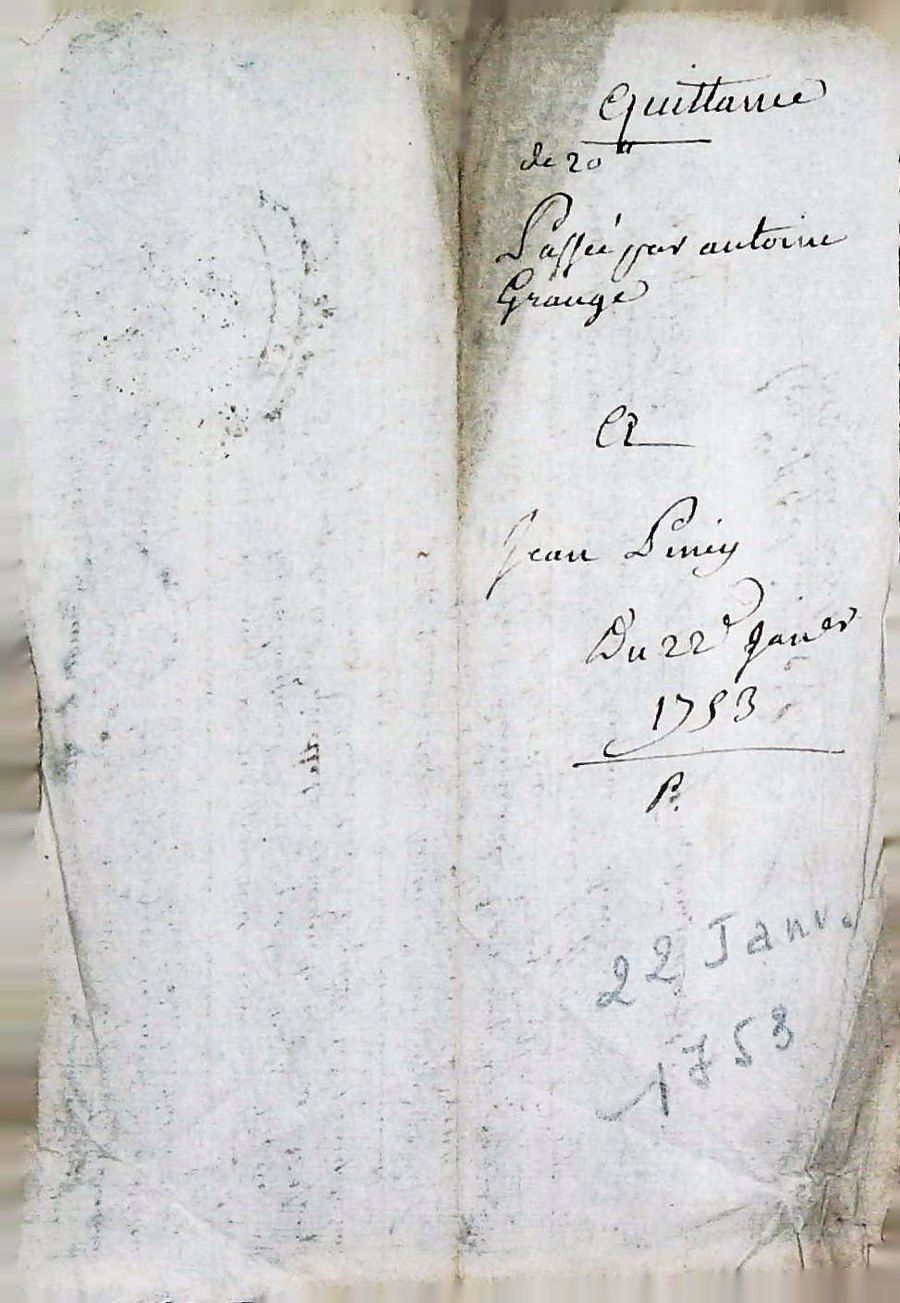 Quittance
de 20 ᵗᵗ
Passée par antoine
Grange
A
Jean
Du 22ᵉ Janer
1753
P.
22 Janv.
1753